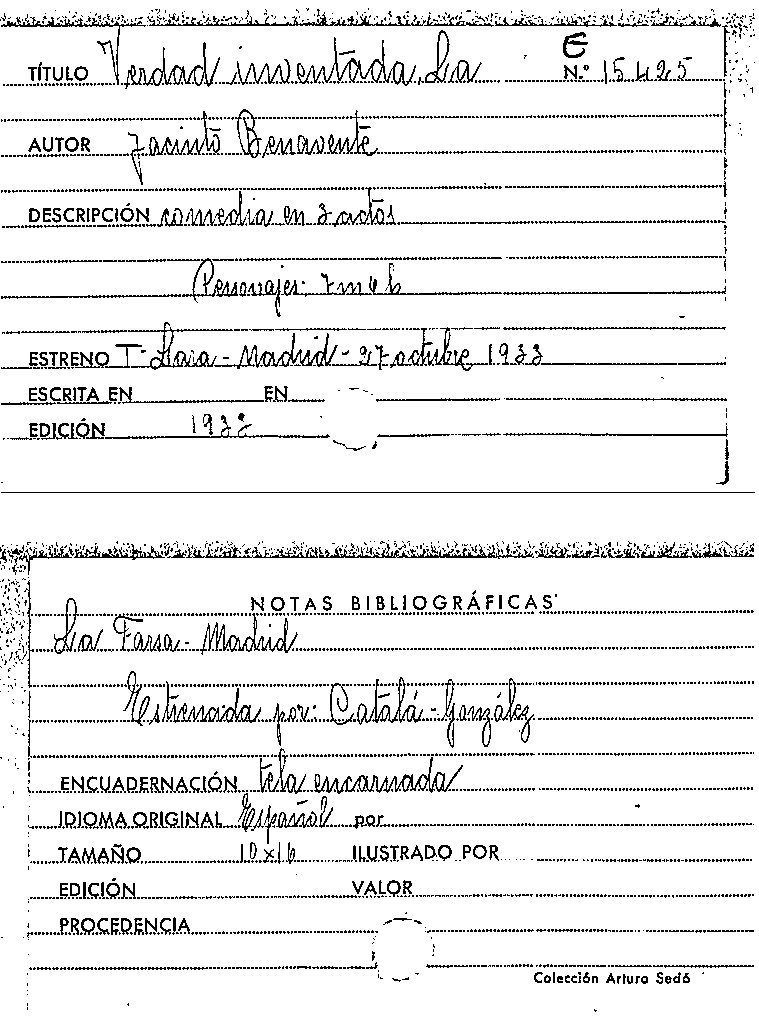 E
TÍTULO Verdad inventada, La N.º 15425
AUTOR Jacinto Benavente
DESCRIPCIÓN comedia en 3 actos
Personajes: 7 m 6 h
ESTRENO T. Lara - Madrid - 27 octubre 1933
ESCRITA EN EN
EDICIÓN 1933
NOTAS BIBLIOGRÁFICAS
La Farsa - Madrid
Estrenada por: Catalá - González
ENCUADERNACIÓN tela encarnada
IDIOMA ORIGINAL Español por
TAMAÑO 10x16 ILUSTRADO POR
EDICIÓN VALOR
PROCEDENCIA
Colección Arturo Sedó